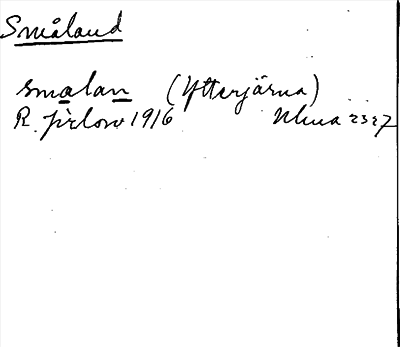 Småland
smalan (Ytterjärna)
R. Jirlow 1916 Ulma 2327